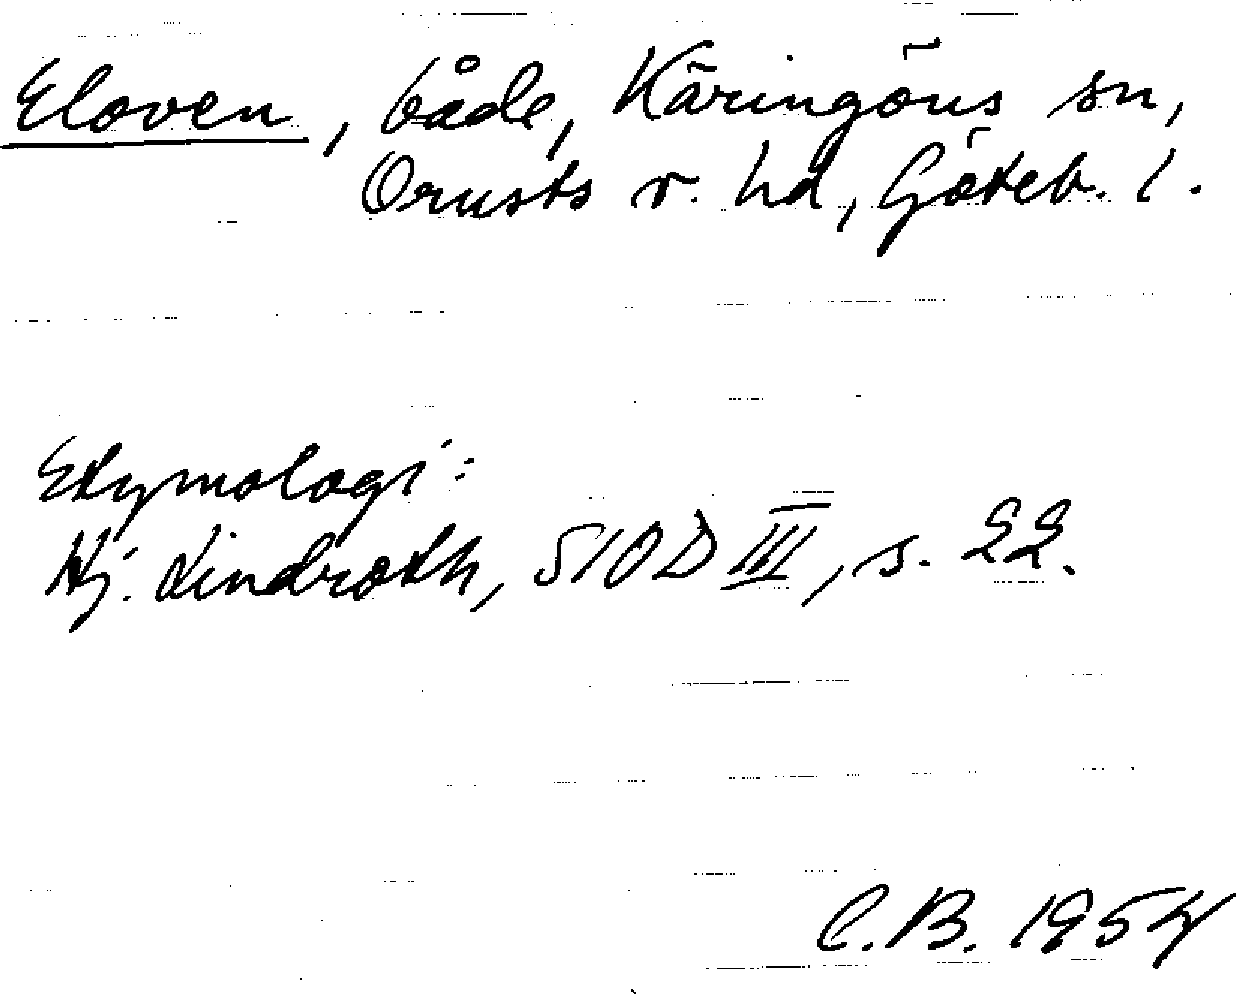 Eloven, både, Käringöns sn,
Orusts v. hd, Göteb. l.
Etymologi:
Hj. Lindroth, SIOD III, s. 22.
C.B. 1954